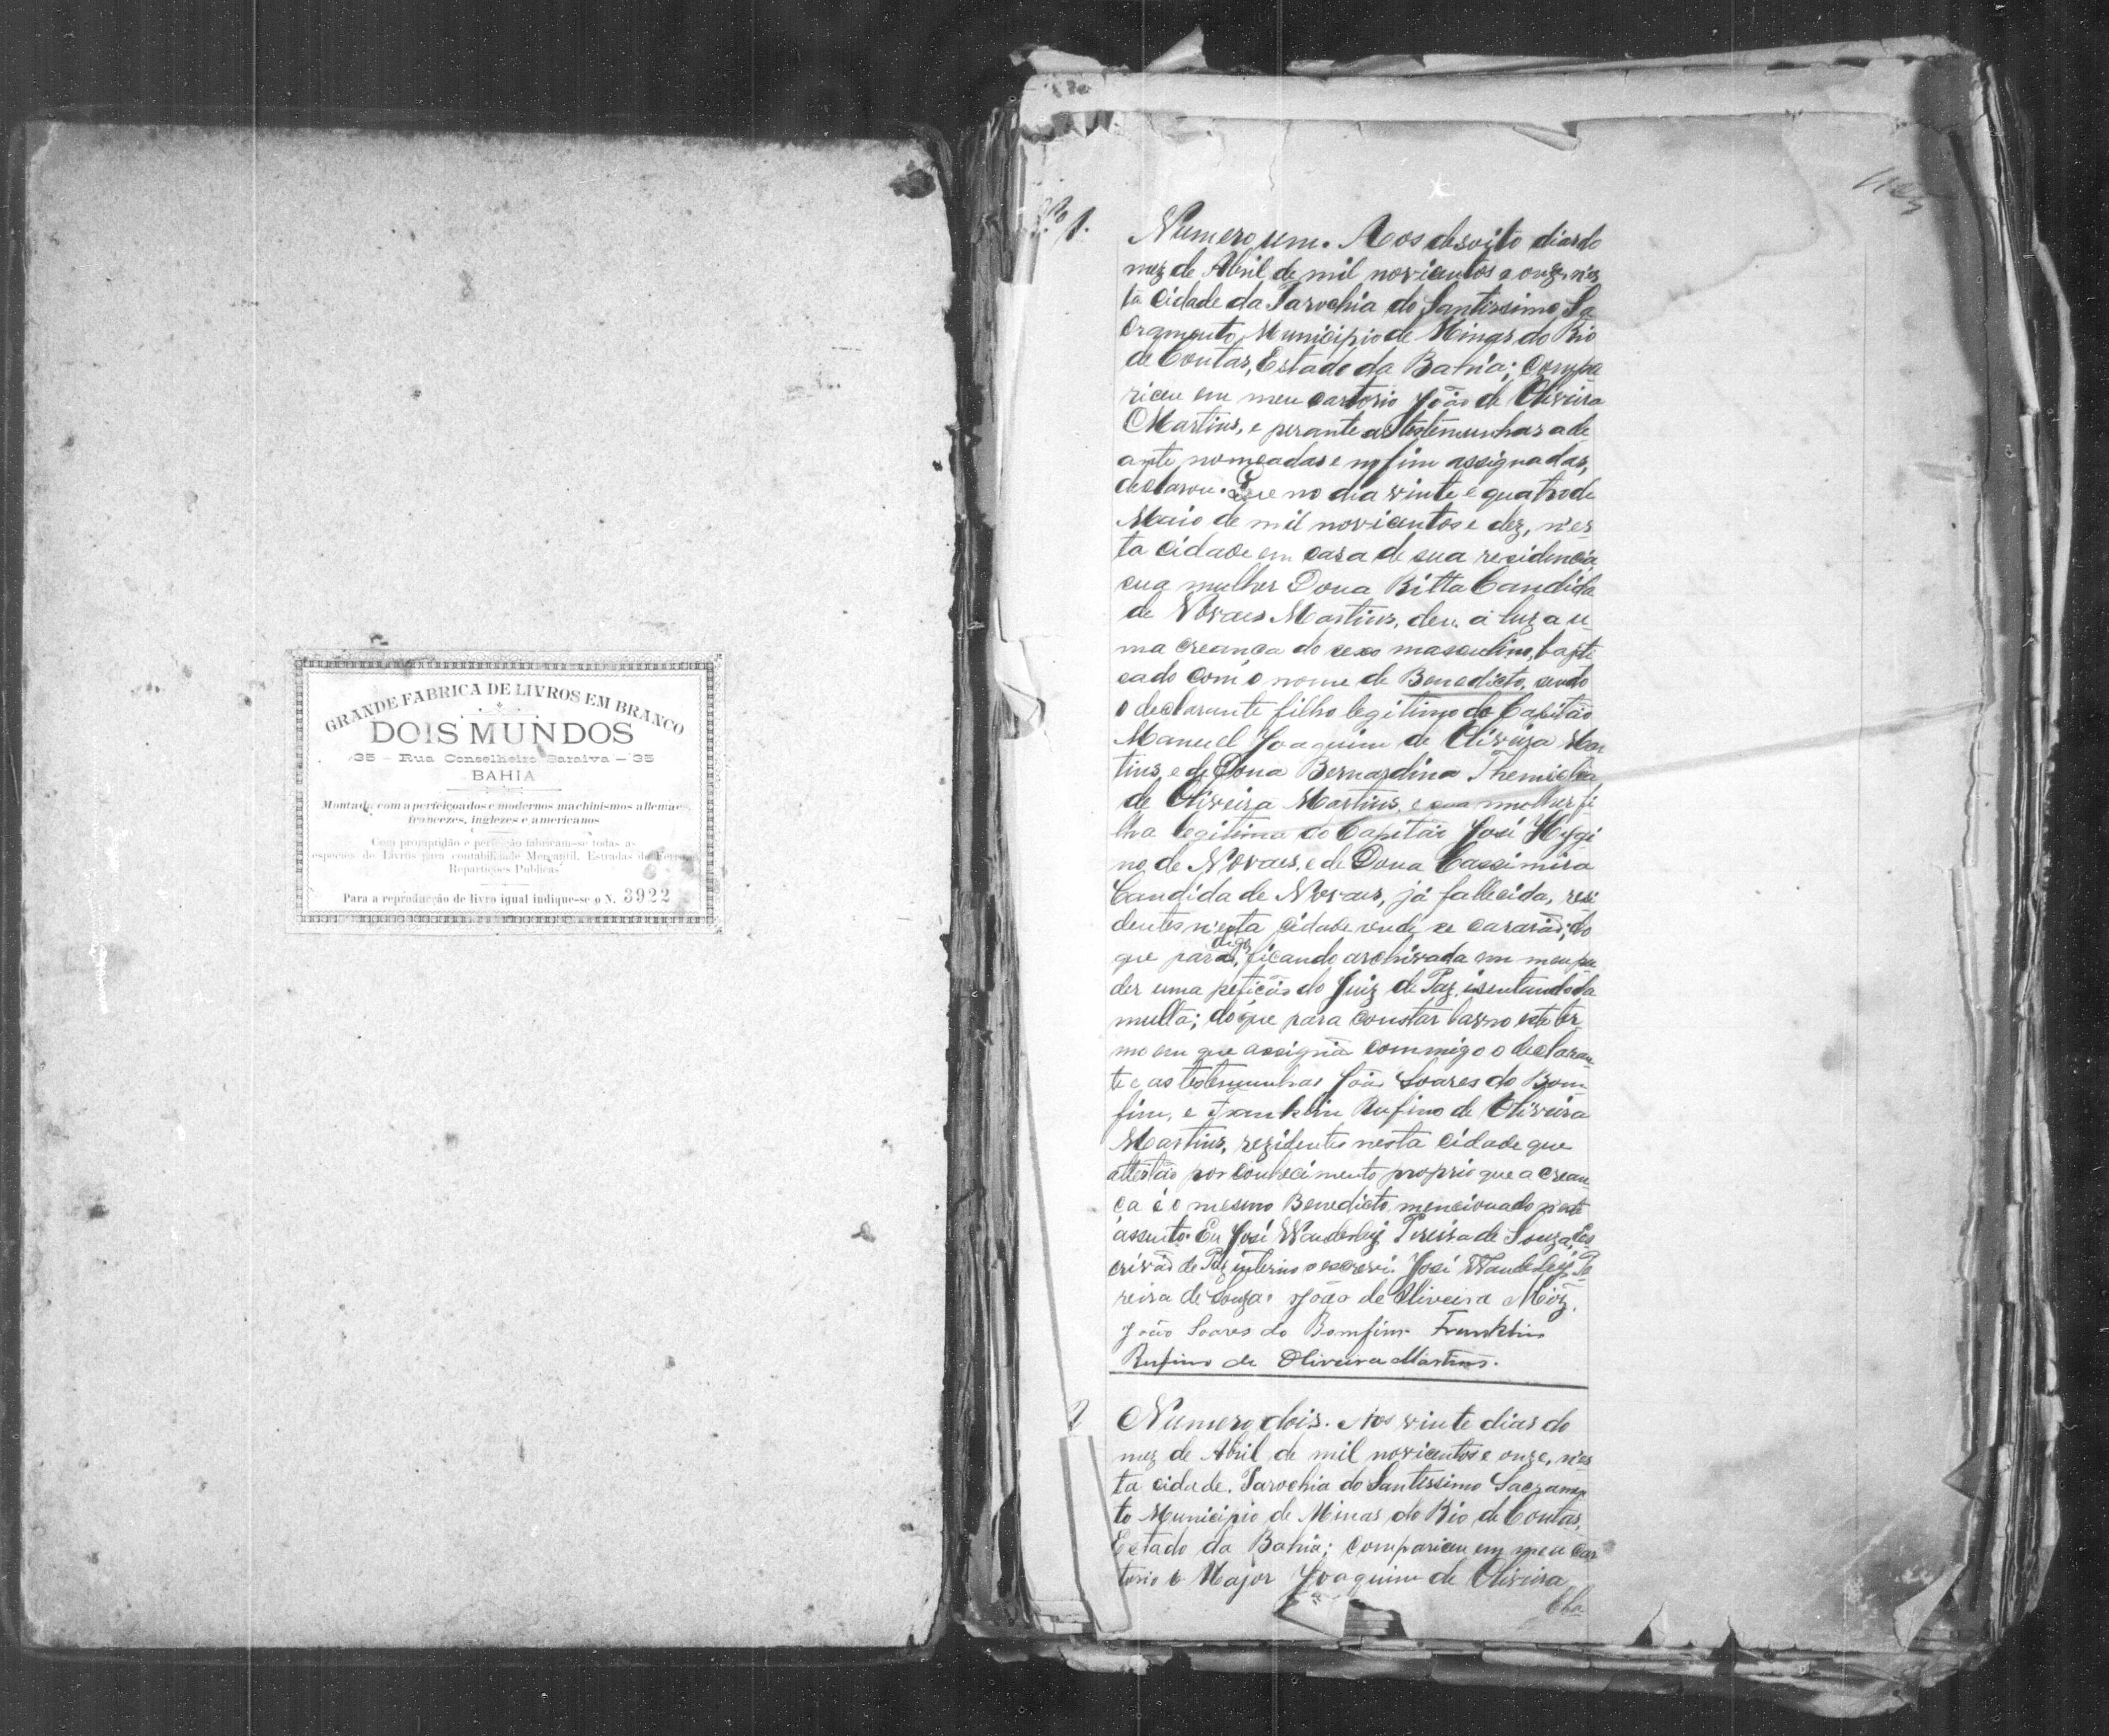 GRANDE FABRICA DE LIVROS EM BRANCO
DOIS MUNDOS
35 - Rua Conselheiro Saraiva - 35
BAHIA
Montada com aperfeiçoados e modernos machinismos allemães,
francezes, inglezes e americanos
Com promptidão e perfeição fabricam-se todas as
especies de Livros para contabilidade Mercantil, Estradas de Ferro,
Repartições Publicas
Para a reproducção de livro igual indique-se o N. 3922
Nº 1.
Numero um. Aos desoito dias do
mez de Abril de mil novicentos e onze, n'es
ta cidade da Parochia do Santissimo Sa
cramento, Municipio de Minas do Rio
de Contas, Estado da Bahia; compa
riceu em meu cartorio João de Oliveira
Martins, e perante as testemunhas adi
ante nomeadas e no fim assignadas,
declarou. Que no dia vinte e quatro de
Maio de mil novicentos e dez, n'es
ta cidade em casa de sua residencia,
sua mulher Dona Ritta Candida
de Novaes Martins, deu a luz a u-
ma creança do sexo masculino, bapti
sado com o nome de Benedicto, sendo
o declarante filho legitimo do Capitão
Manuel Joaquim de Oliveira Mar
tins, e de Dona Bernardina
de Oliveira Martins, e sua mulher fi
lha legitima do Capitão José Hygi
no de Novaes, e de Dona Cassimira
Candida de Novaes, já fallecida, resi
dentes n'esta cidade onde se casarão; do
que para, digo, ficando archivada em meu po
der uma petição do Juiz de Paz, isentando da
multa; do que para constar lavro este ter
mo em que assignã commigo o declaran
te e as testemunhas João Soares do Bom
fim, e Franklin Rufino de Oliveira
Martins, rezidentes nesta cidade que
attestão por conhecimento proprio que a crean
ça é o mesmo Benedicto mencionado n'este
assento. Eu José Wanderley Pereira de Souza, Es
crivão de Paz interino o escrevi. José Wanderley Pe
reira de Souza. João de Oliveira Miz.
João Soares do Bomfim. Franklin
Rufino de Oliveira Martins.
2
Numero dois. Aos vinte dias do
mez de Abril de mil novicentos e onze, n'es
ta cidade. Parochia do Santissimo Sacramen
to Municipio de Minas do Rio de Contas,
Estado da Bahia; compariceu em meu car
torio o Major Joaquim de Oliveira